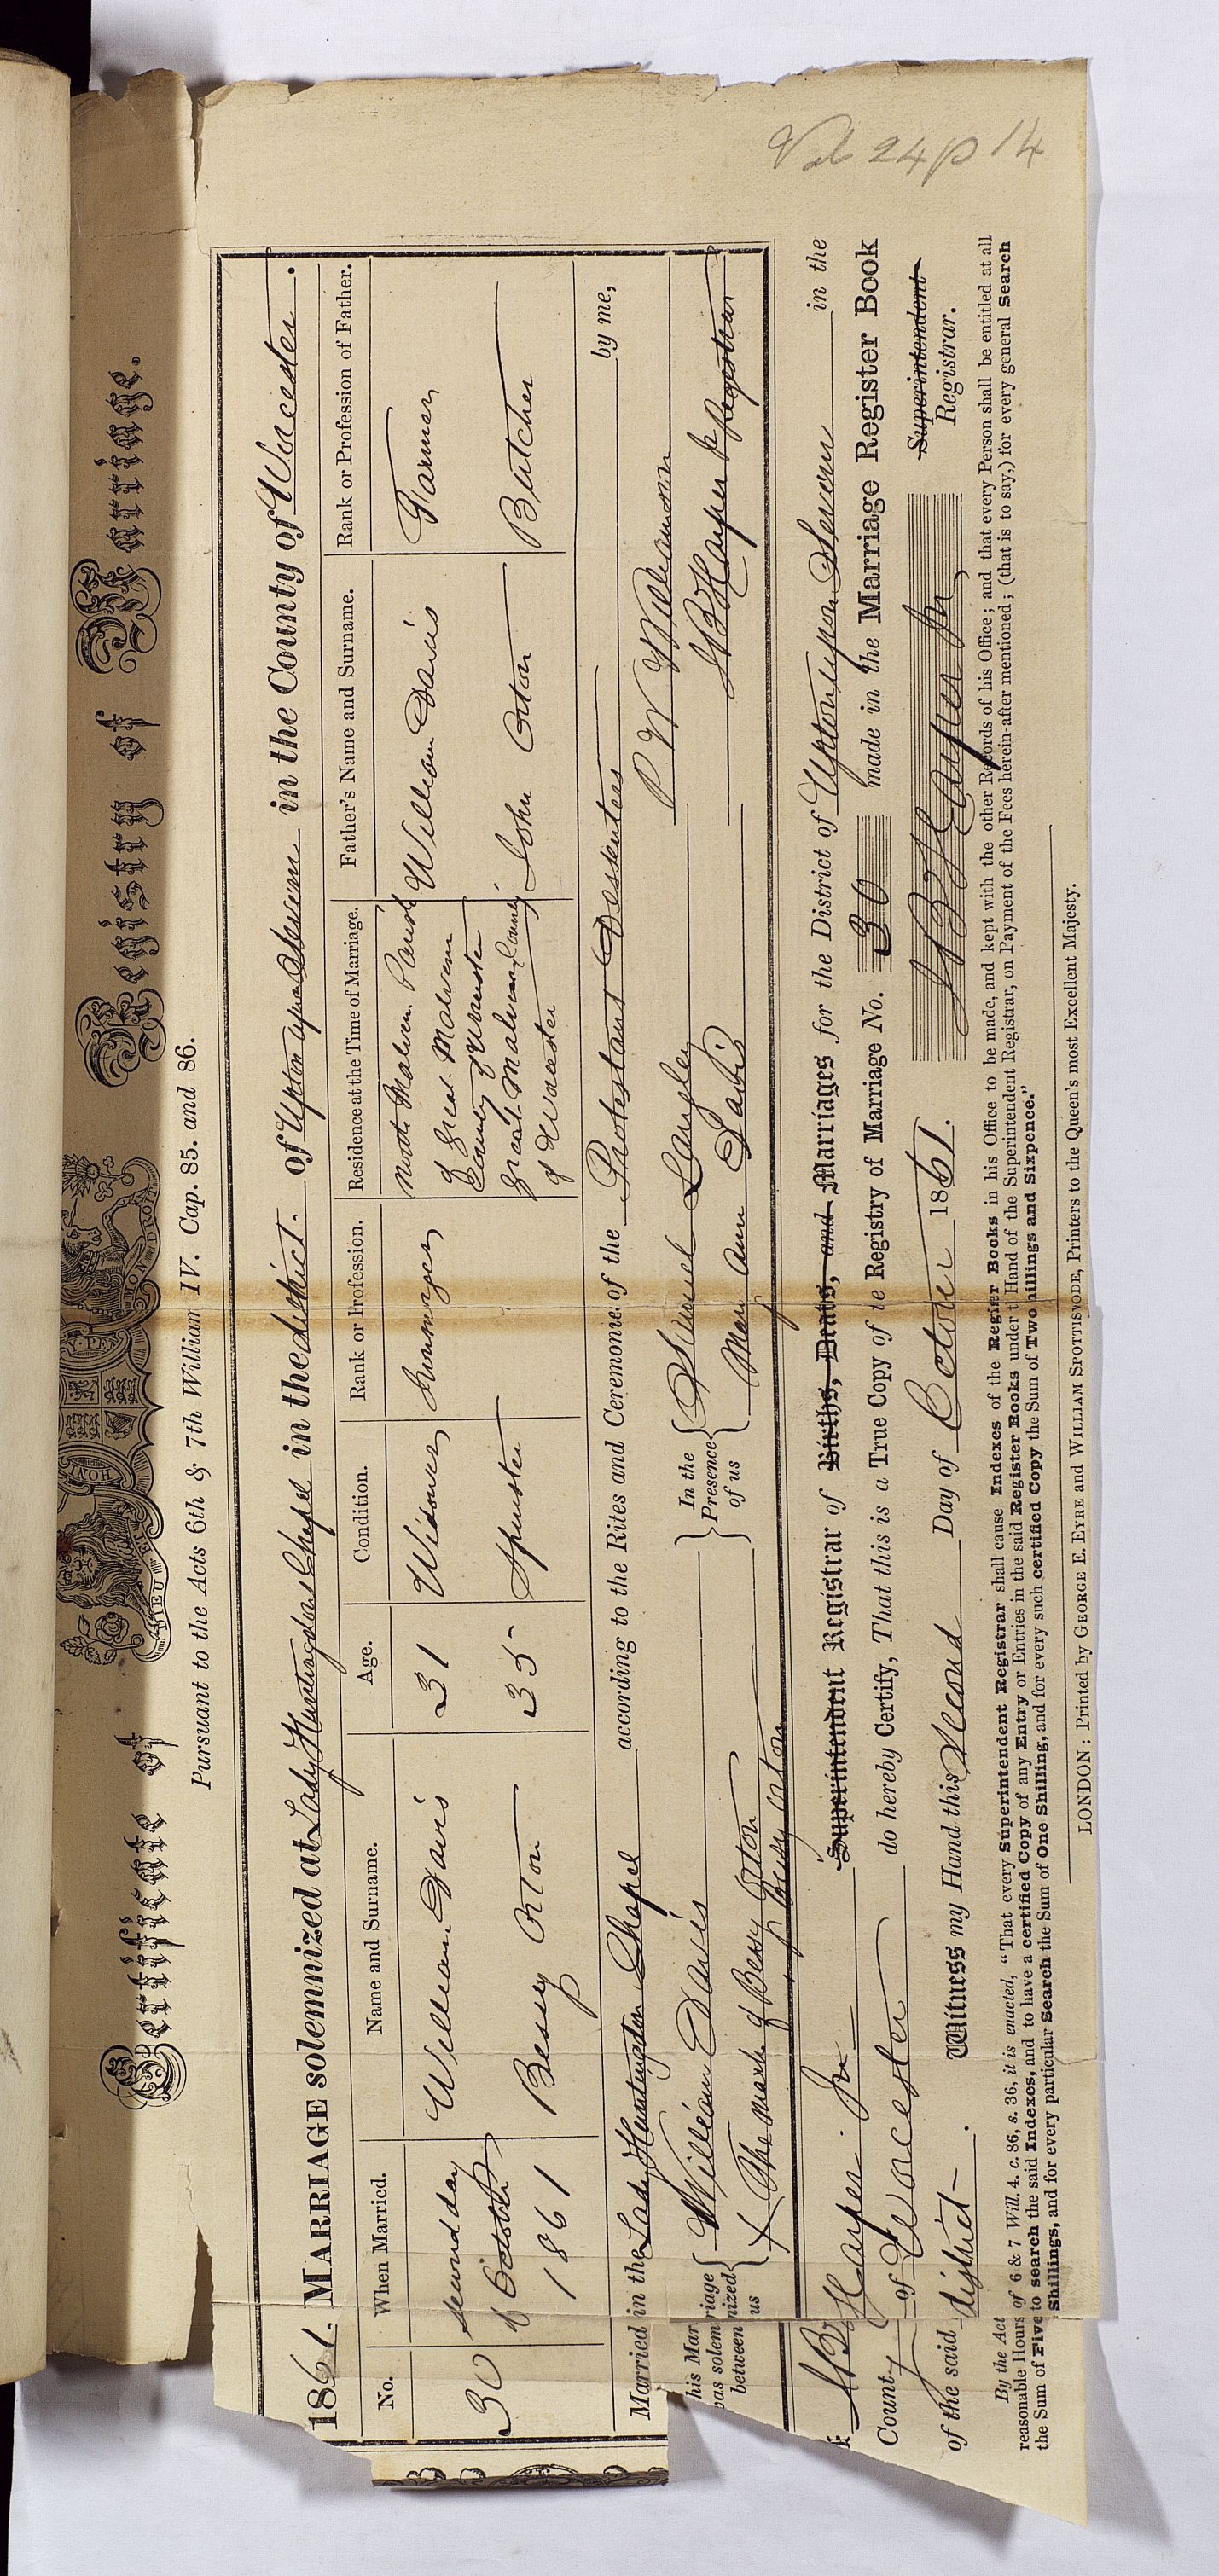 Vol 24 p 14
DIEU ET MON DROIT
HONI
Y PEN
Certificate of Registry of Marriage.
Pursuant to the Acts 6th & 7th William IV. Cap. 85. and 86.
1861. MARRIAGE solemnized at Lady Huntingdons Chapel in the district of Upton upon Severn in the County of Worcester.
No. When Married. Name and Surname. Age. Condition. Rank or Profession. Residence at the Time of Marriage. Father's Name and Surname. Rank or Profession of Father.
30 second day of October 1861
William Davis 31 Widower North Malvern Parish of Great Malvern County of Worcester William Davis Farmer
Bessy Orton 35 Spinster Great Malvern County of Worcester John Orton Butcher
Married in the Lady Huntingdon Chapel according to the Rites and Ceremonies of the Protestant Dessenters by me,
his Marriage was solemnized between us
William Davis
X The Mark of Bessy Orton
In the Presence of us
Samuel Langley
Mary Ann Davis
P W Williamson
J B Harper Jr Registrar
J B Harper Jr Superintendent Registrar of Births, Deaths, and Marriages for the District of Upton upon Severn in the
County of Worcester do hereby Certify, That this is a True Copy of the Registry of Marriage No. 30 made in the Marriage Register Book
of the said district. Witness my Hand this second Day of October 1861. J B Harper Jr Superintendent Registrar.
By the Act of 6 & 7 Will. 4. c. 86, s. 36, it is enacted, "That every Superintendent Registrar shall cause Indexes of the Register Books in his Office to be made, and kept with the other Records of his Office; and that every Person shall be entitled at all
reasonable Hours to search the said Indexes, and to have a certified Copy of any Entry or Entries in the said Register Books under the Hand of the Superintendent Registrar, on Payment of the Fees herein-after mentioned; (that is to say,) for every general Search
the Sum of Five Shillings, and for every particular Search the Sum of One Shilling, and for every such certified Copy the Sum of Two Shillings and Sixpence."
LONDON: Printed by GEORGE E. EYRE and WILLIAM SPOTTISWODE, Printers to the Queen's most Excellent Majesty.